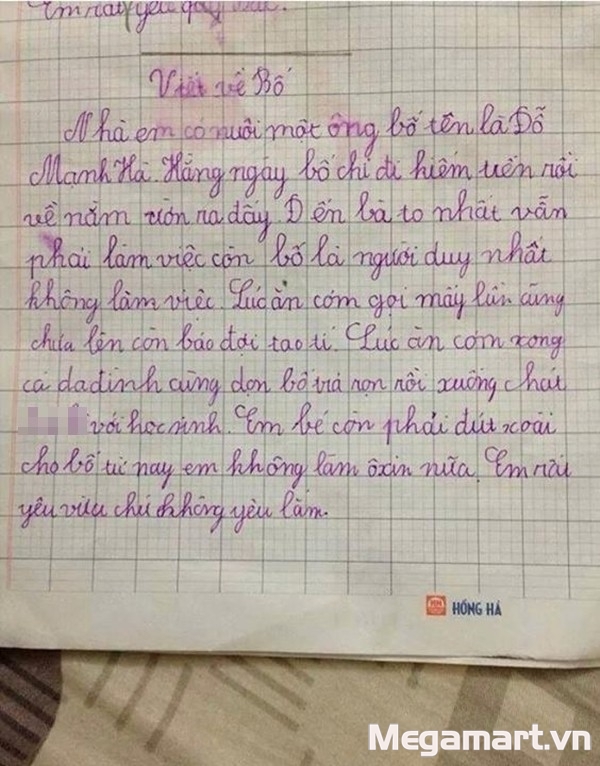 Em rất yêu
Viết về Bố
Nhà em có nuôi một ông bố tên là Đỗ
Mạnh Hà. Hằng ngày bố chỉ đi kiếm tiền rồi
về nằm ườn ra đấy Đến bà to nhất vẫn
phải làm việc còn bố là người duy nhất
không làm việc. Lúc ăn cơm gọi mấy lần cũng
chưa lên còn bảo đợi tao tí. Lúc ăn cơm xong
cả da đình cùng dọn bố rồi xuống chát
với học sinh. Em bé còn phải đút xoài
cho bố từ nay em không làm ôxin nữa. Em rất
yêu vừa chứ không yêu lắm.
HỒNG HÀ
Megamart.vn